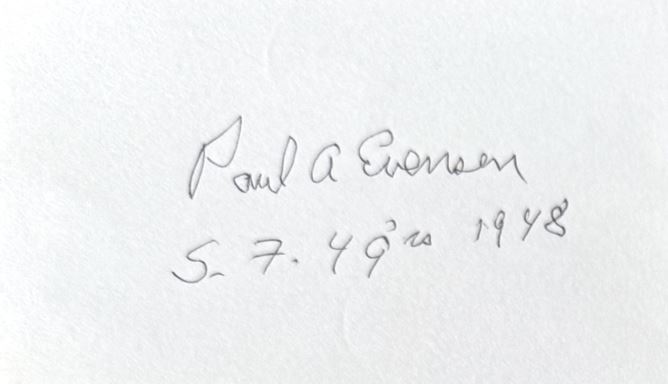 Paul A Evensen
S. F. 49'ers 1948